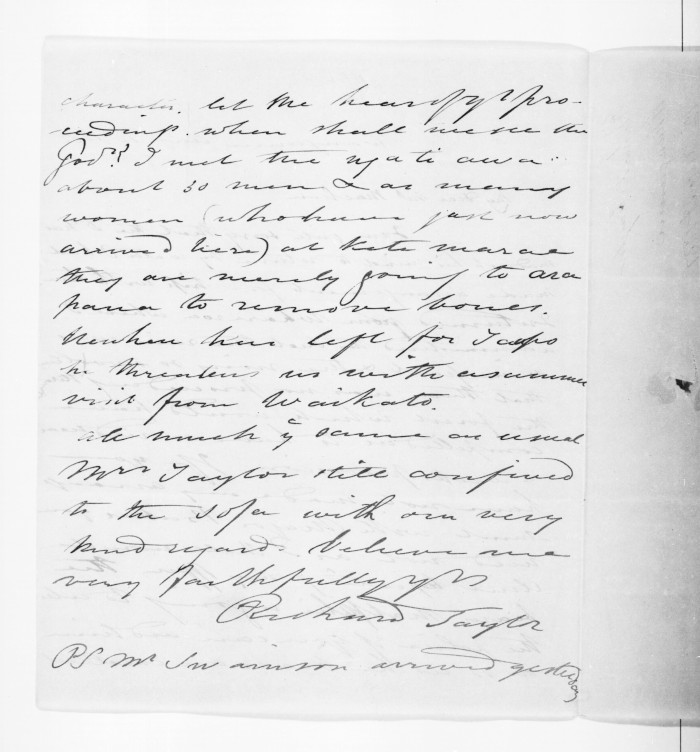 character. let me hear of yr pro-
-ceedings. when shall we see the
Govr? I met the ngati awa
about 50 men & as many
women (who have just now
arrived here) at Kete marae
they are merely going to ara
paua to remove bones.
Heuheu has left for Taupo
he threatens us with a summer
visit from Waikato.
all much ye same as usual
Mrs Taylor still confined
to the sofa with our very
kind regards believe me
very faithfully yrs
Richard Taylor
PS Mr Swainson arrived yesterday